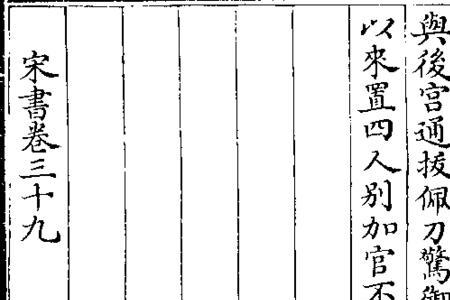 與後宮通拔佩刀驚御
以來置四人別加官不
宋書卷三十九